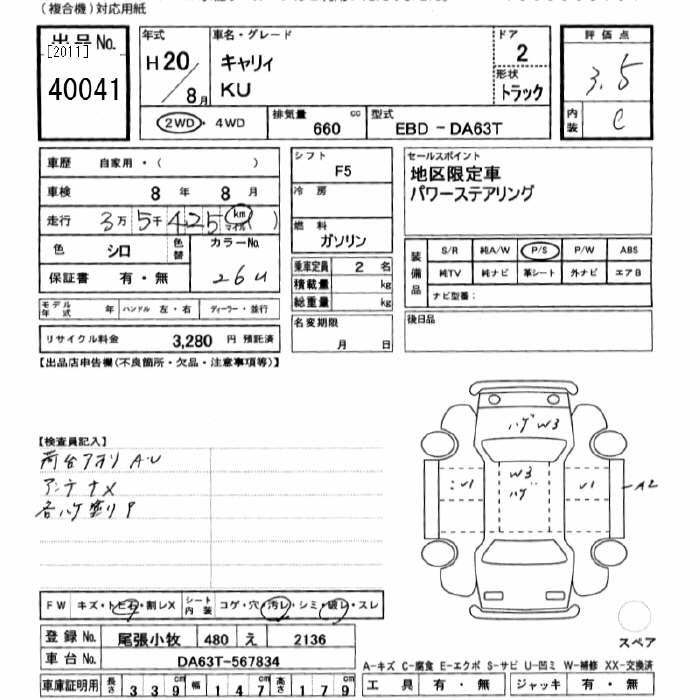 (複合機)対応用紙
出品No.
[2011]
40041
年式
H20/8月
車名・グレード
キャリィ
KU
ドア
2
形状
トラック
評価点
3.5
内装
C
2WD・4WD
排気量 660 cc
型式 EBD-DA63T
車歴 自家用・( )
車検 8年 8月
走行 3万5千425 km マイル )
色 シロ 色替
カラーNo. 26U
保証書 有・無
シフト F5
冷房
燃料 ガソリン
乗車定員 2名
積載量 kg
総重量 kg
セールスポイント
地区限定車
パワーステアリング
装備品
S/R 純A/W P/S P/W ABS
純TV 純ナビ 革シート 外ナビ エアB
ナビ型番:
モデル年式 年 ハンドル 左・右 ディーラー・並行
名変期限 月 日
後日品
リサイクル料金 3,280円 預託済
【出品店申告欄(不良箇所・欠品・注意事項等)】
【検査員記入】
荷台アオリ A.U
アンテナX
各ハゲ塗りP
ハゲ W3
W3
ハゲ
U1
U1
A2
FW キズ・トビ石・割レX
シート内装 コゲ・穴・汚レ・シミ・破レ・スレ
スペア
登録No. 尾張小牧 480 え 2136
車台No. DA63T-567834
A-キズ C-腐食 E-エクボ S-サビ U-凹ミ W-補修 XX-交換済
車庫証明用 長さ 339cm 幅 147cm 高さ 179cm
工具 有・無 ジャッキ 有・無